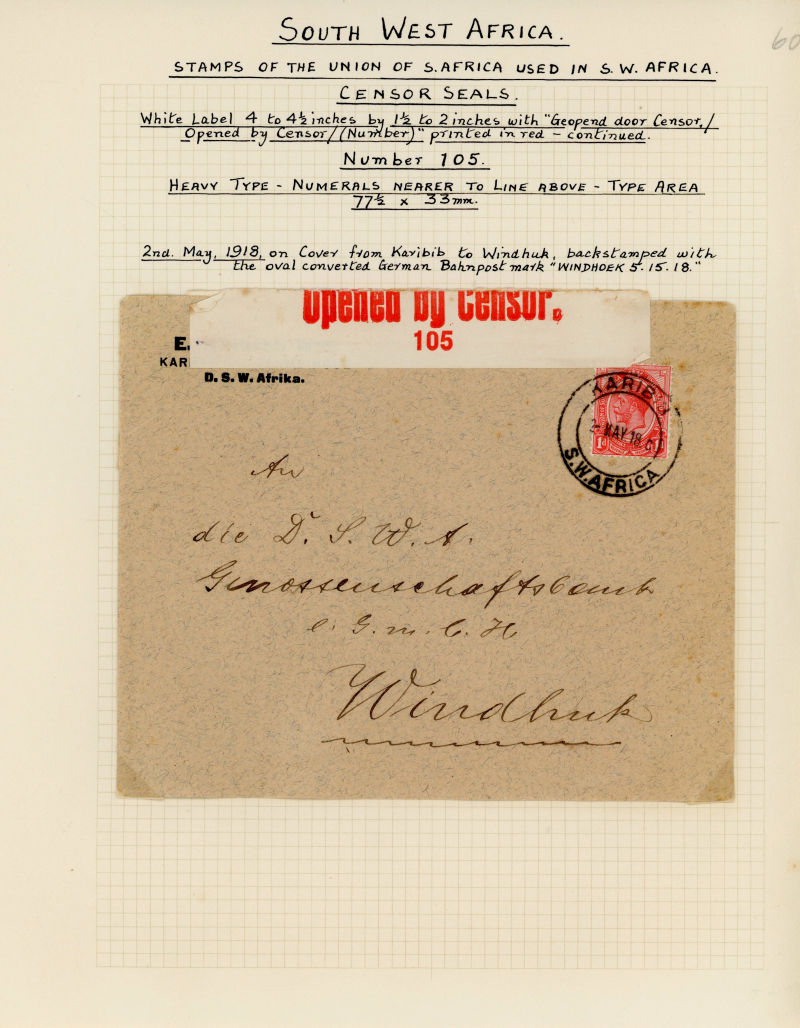 60
SOUTH WEST AFRICA.
STAMPS OF THE UNION OF S. AFRICA USED IN S. W. AFRICA.
CENSOR SEALS.
White Label 4 to 4½ inches by 1½ to 2 inches with "Geopend door Censor, /
Opened by Censor / (Number)" printed in red – continued.
Number 105.
HEAVY TYPE - NUMERALS NEARER TO LINE ABOVE - TYPE AREA
77½ x 33mm.
2nd. May, 1918, on Cover from Karibib to Windhuk, backstamped with
the oval converted German Bahnpost mark "WINDHOEK 5. 15. 18."
Opened by Censor.
105
E.
KAR
D. S. W. Afrika.
KARIBIB
2 MAY 18
S.W. AFRICA
1d
An
die D. S. W. A.
Genossenschaftsbank
e. G. m. b. H
Windhuk